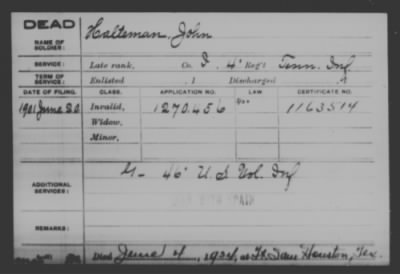 DEAD
NAME OF SOLDIER:
Halteman, John
SERVICE:
Late rank, Co. I, 4" Reg't Tenn. Inf
TERM OF SERVICE:
Enlisted , 1 Discharged , 1
DATE OF FILING. CLASS. APPLICATION NO. LAW CERTIFICATE NO.
1901 June 20 Invalid, 1270.456 1163514
Widow,
Minor,
ADDITIONAL SERVICES:
G - 46" U.S. Vol. Inf
WAR WITH SPAIN
REMARKS:
Died June 4, 1934, at Ft. Sam Houston, Tex.